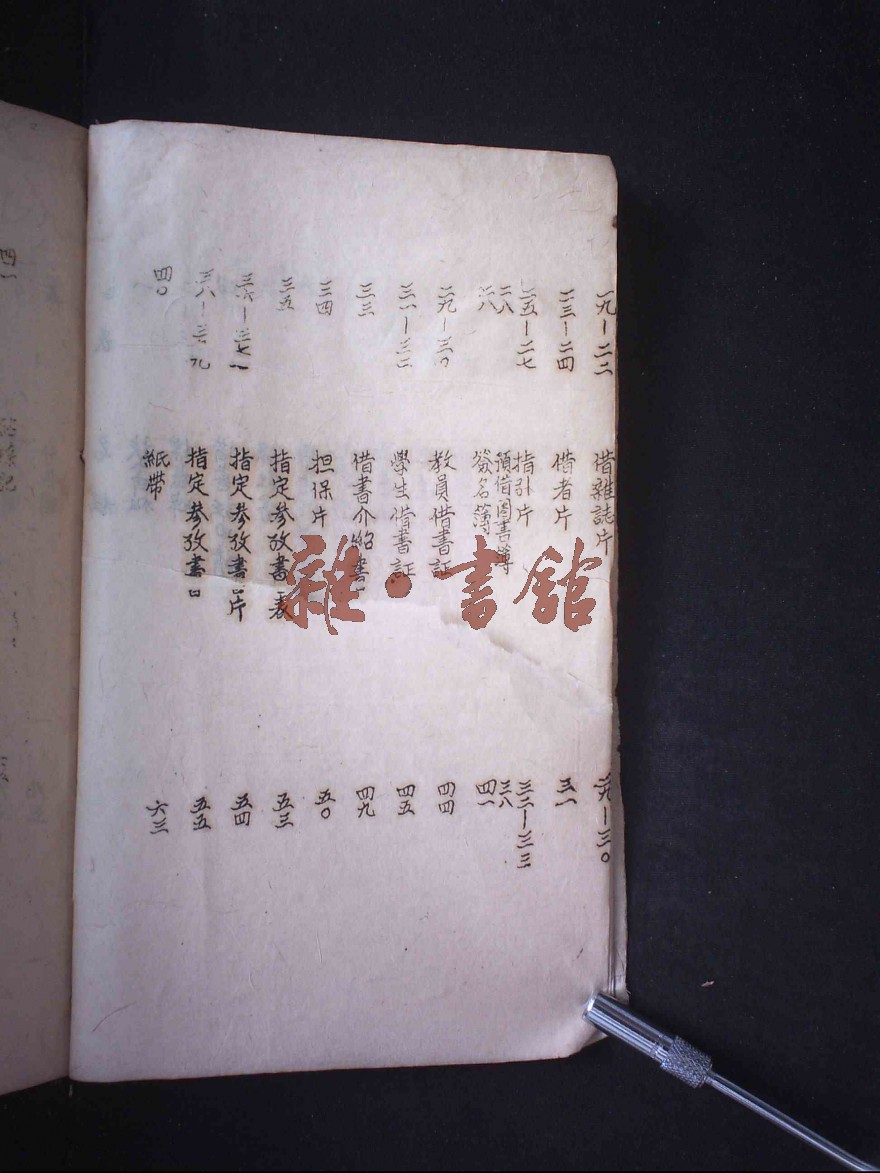 一九－二二 借雜誌片 二九－三〇
二三－二四 借者片 三一
二五－二七 指引片 三二－三三
二八 預借圖書簿 三八
二八 簽名簿 四一
二九－三〇 教員借書証 四四
三一－三二 學生借書証 四五
三三 借書介紹書 四九
三四 担保片 五〇
三五 指定參攷書表 五三
三六－三七 指定參攷書片 五四
三八－三九 指定參攷書 五五
四〇 紙帶 六三
雜·書館
四一